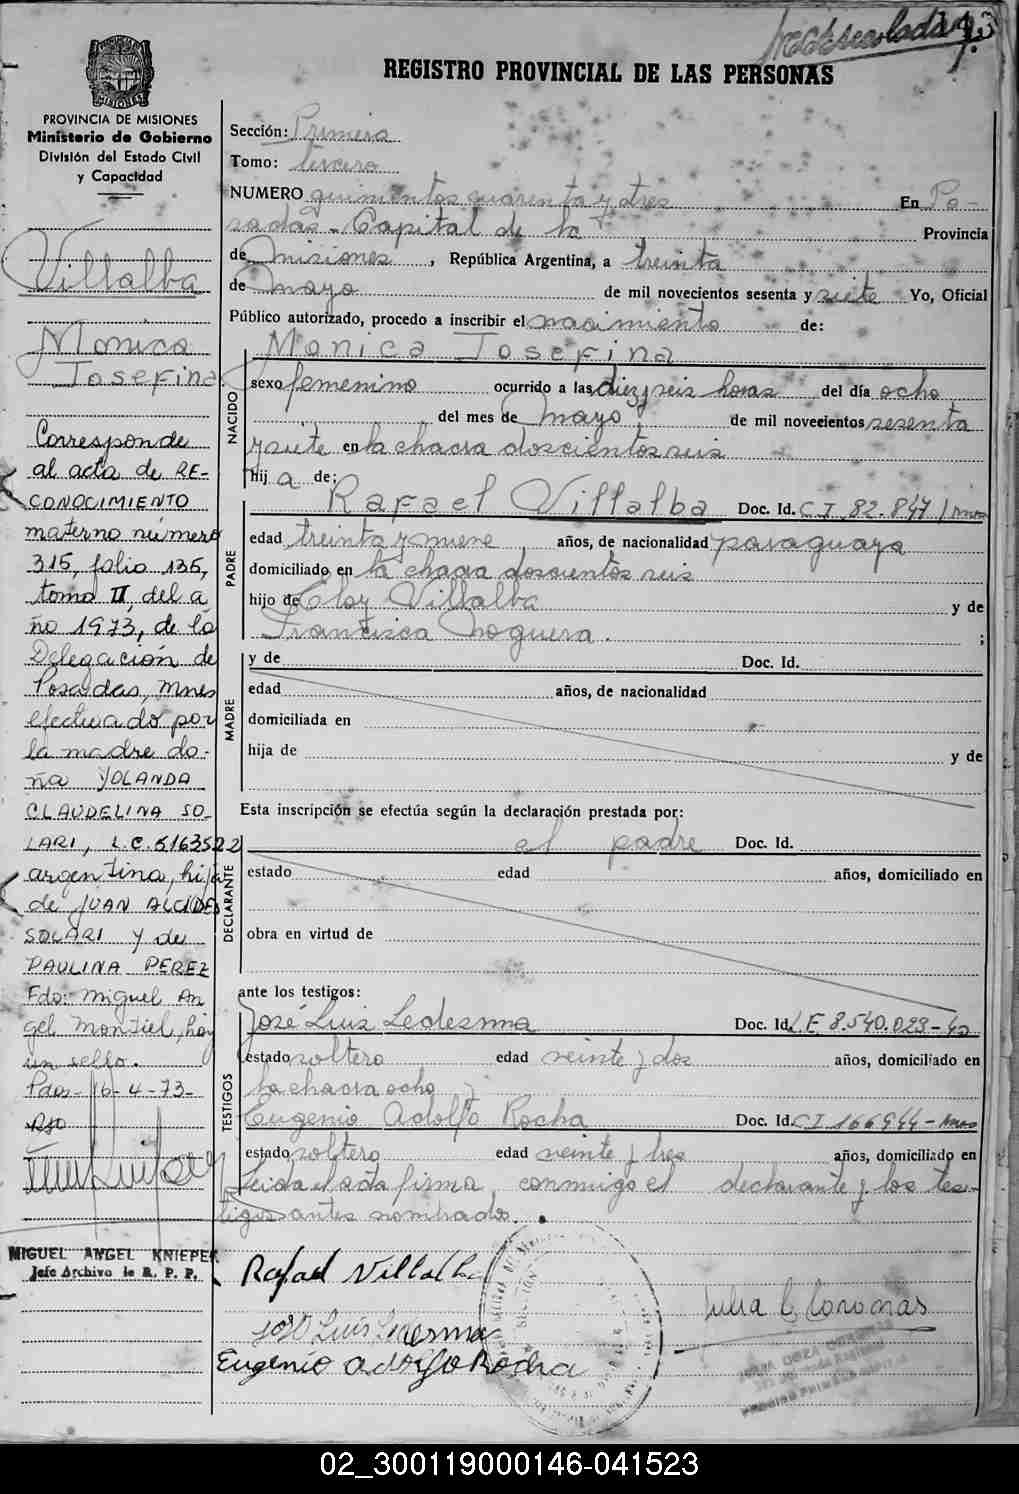 REGISTRO PROVINCIAL DE LAS PERSONAS
PROVINCIA DE MISIONES
Ministerio de Gobierno
División del Estado Civil
y Capacidad
Villalba
Monica
Josefina
Corresponde
al acta de RE-
CONOCIMIENTO
materno número
315, folio 136,
tomo II, del a
ño 1973, de la
Delegación de
Posadas, Mnes
efectuado por
la madre do-
ña YOLANDA
CLAUDELINA SO-
LARI, L.C. 6163522
argentina, hija
de JUAN ALCIDES
SOLARI y de
PAULINA PEREZ
Fdo: Miguel An
gel Montiel, hay
un sello.
Pdas- 16-4-73-
MIGUEL ANGEL KNIEPER
Jefe Archivo de R. P. P.
Sección: Primera
Tomo: tercero
NUMERO quinientos cuarenta y tres En Po-
sadas - Capital de la Provincia
de Misiones, República Argentina, a treinta
de Mayo de mil novecientos sesenta y siete Yo, Oficial
Público autorizado, procedo a inscribir el nacimiento de:
NACIDO
Monica Josefina
sexo femenino ocurrido a las diez y seis horas del día ocho
del mes de Mayo de mil novecientos sesenta
y siete en la chacra doscientos seis
hij a de:
PADRE
Rafael Villalba Doc. Id. C.I. 82.847 / Mnes
edad treinta y nueve años, de nacionalidad paraguaya
domiciliado en la chacra doscientos seis
hijo de Eloy Villalba y de
Francisca Noguera. ;
MADRE
y de Doc. Id.
edad años, de nacionalidad
domiciliada en
hija de y de
Esta inscripción se efectúa según la declaración prestada por:
DECLARANTE
el padre Doc. Id.
estado edad años, domiciliado en
obra en virtud de
ante los testigos:
TESTIGOS
José Luis Ledesma Doc. Id. L.E. 8.540.023-
estado soltero edad veinte y dos años, domiciliado en
la chacra ocho y
Eugenio Adolfo Rocha Doc. Id. C.I. 166944- Mnes
estado soltero edad veinte y tres años, domiciliado en
Leida el acta firma conmigo el declarante y los tes-
tigos antes nombrados.
Rafael Villalba
José Luis Ledesma
Eugenio Adolfo Rocha
Julia C Coronas
02_300119000146-041523